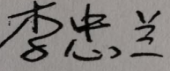 李忠兰